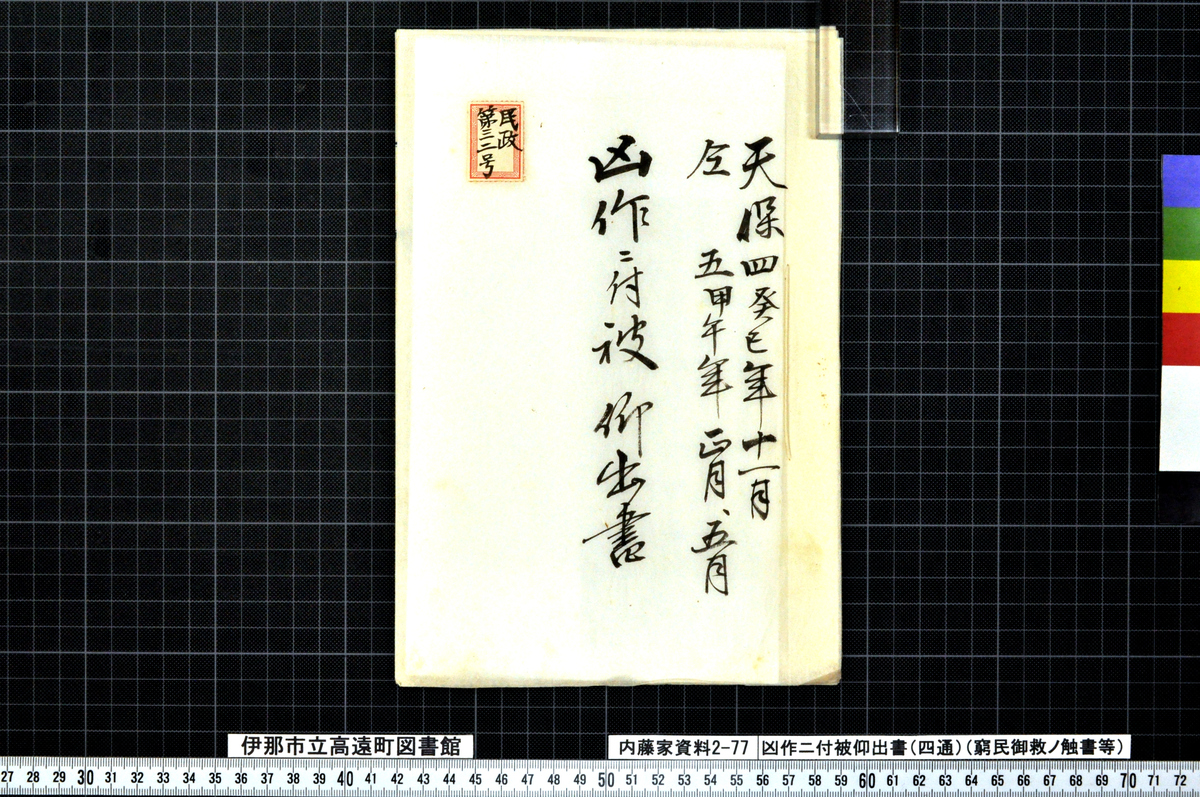 天保四癸巳年十一月
仝五甲午年正月、五月
凶作ニ付被仰出書
民政
第三二号
伊那市立高遠町図書館
内藤家資料2-77
凶作ニ付被仰出書(四通)(窮民御救ノ触書等)
27 28 29 30 31 32 33 34 35 36 37 38 39 40 41 42 43 44 45 46 47 48 49 50 51 52 53 54 55 56 57 58 59 60 61 62 63 64 65 66 67 68 69 70 71 72